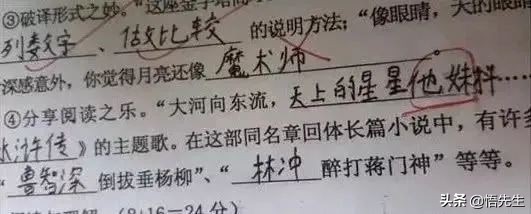 ③破译形式之妙。“这座金字塔高
列数字、作比较 的说明方法；“像眼睛，天的眼睛
深感意外，你觉得月亮还像 魔术师
④分享阅读之乐。“大河向东流，天上的星星他妹抖……
水浒传》的主题歌。在这部同名章回体长篇小说中，有许多
“鲁智深 倒拔垂杨柳”、“林冲 醉打蒋门神”等等。
(8+16=24分)
头条 @悟先生